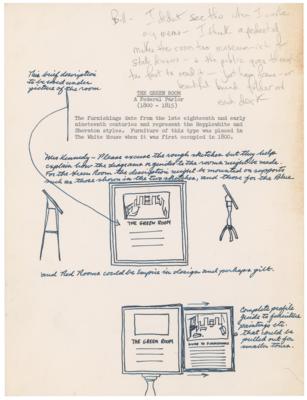 Bill - I didn't see this when I wrote
my memo - I think a pedestal
makes the room too museum-ish or
stately
This brief description
to be used under
picture of the room
THE GREEN ROOM
A Federal Parlor
(1800 - 1815)
The furnishings date from the late eighteenth and early
nineteenth centuries and represent the Hepplewhite and
Sheraton styles. Furniture of this type was placed in
The White House when it was first occupied in 1800.
Mrs Kennedy - Please excuse the rough sketches but they help
explain how the diagrams or guides to the rooms might be made.
For the Green Room the description might be mounted on supports
such as those shown in the two sketches, and those for the Blue
THE GREEN ROOM
and Red Rooms could be Empire in design and perhaps gilt.
THE GREEN ROOM
GUIDE TO FURNISHINGS
Complete profile
guide to furniture
paintings etc.
that could be
pulled out for
smaller tours.